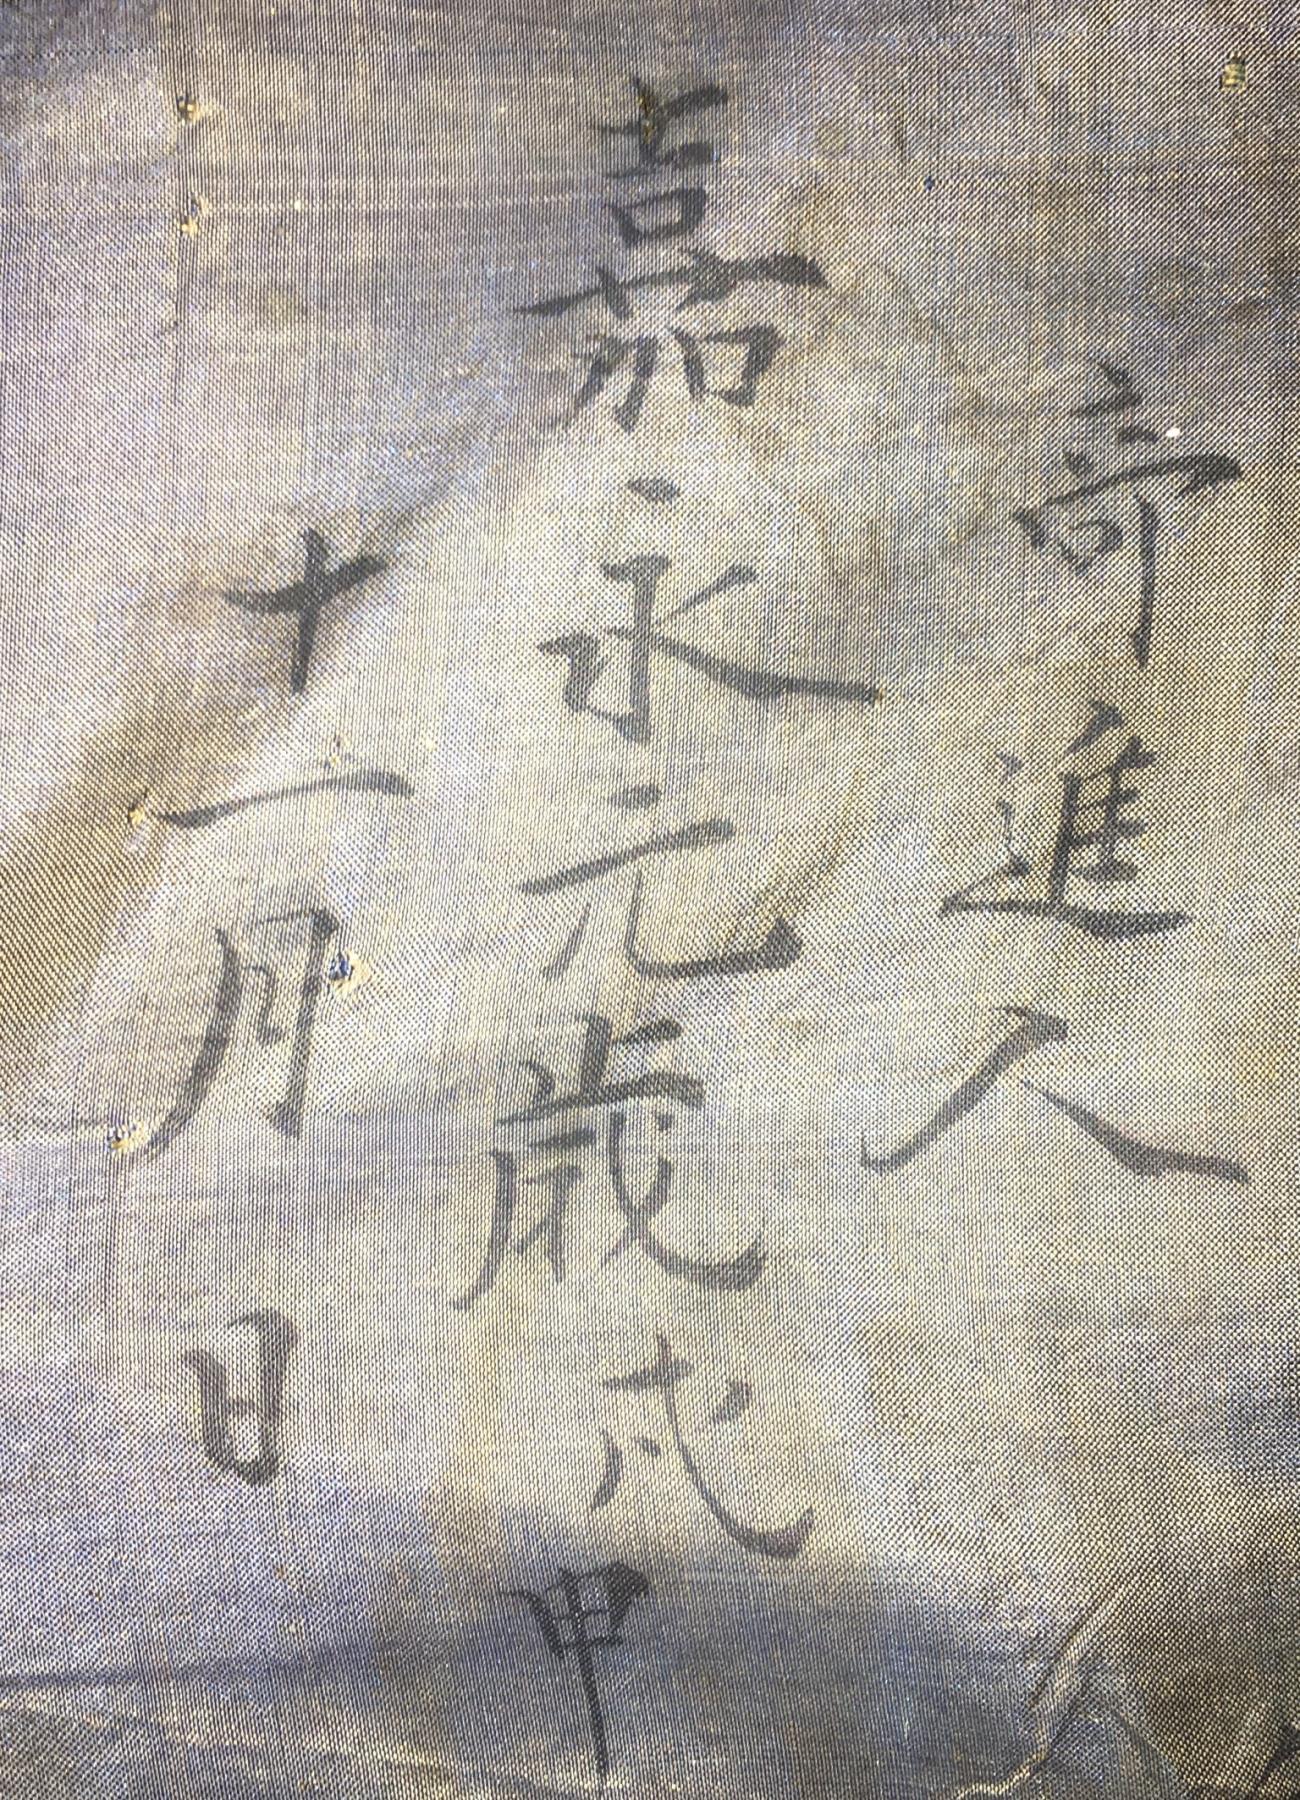 奇進人
嘉永元歳戊申
十一月日